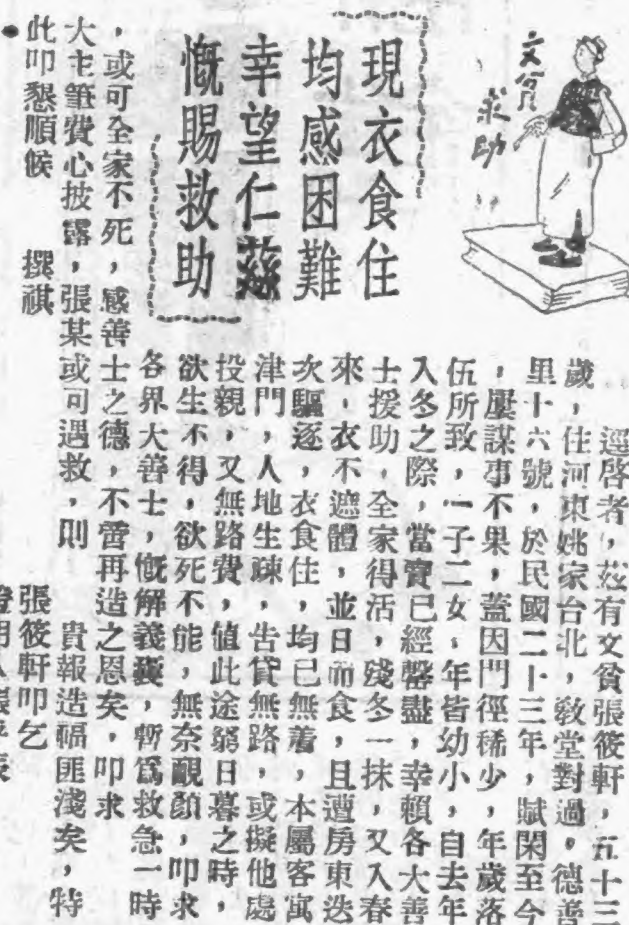 文貧
求助
現衣食住
均感困難
幸望仁慈
慨賜救助
逕啓者，茲有文貧張筱軒，五十三
歲，住河東姚家台北，敎堂對過，德善
里十六號，於民國二十三年，賦閑至今
，屢謀事不果，蓋因門徑稀少，年歲落
伍所致，一子二女，年皆幼小，自去年
入冬之際，當賣已經罄盡，幸賴各大善
士援助，全家得活，殘冬一抹，又入春
來，衣不遮體，並日而食，且遭房東迭
次驅逐，衣食住，均已無着，本屬客寓
津門，人地生疎，告貸無路，或擬他處
投親，又無路費，値此途窮日暮之時，
欲生不得，欲死不能，無奈靦顏，叩求
各界大善士，慨解義囊，暫爲救急一時
，或可全家不死，感善士之德，不啻再造之恩矣，叩求
大主筆費心披露，張某或可遇救，則　貴報造福匪淺矣，特
此叩懇順候　撰祺
張筱軒叩乞